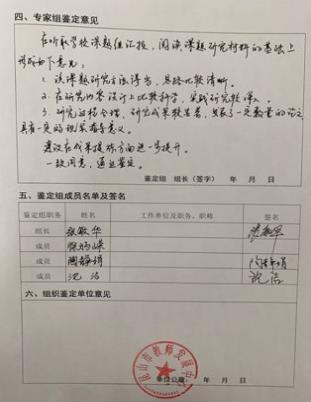 四、专家组鉴定意见
在听取学校课题组汇报，阅读课题研究材料的基础上
形成如下意见：
1. 该课题研究方法得当，思路比较清晰。
2. 在研究内容设计上比较科学，实践研究较深入。
3. 研究过程合理，研究成果较显著，发表了一定数量的论文
具有一定的现实指导意义。
建议在成果提炼方面进一步提升。
一致同意，通过鉴定。
鉴定组 组长（签字） 年 月 日
五、鉴定组成员名单及签名
鉴定组职务 姓名 工作单位及职务、职称 签名
组长 华
成员
成员 陶静娟 陶静娟
成员 沈洁 沈洁
六、组织鉴定单位意见
昆山市教师发展中心
单位公章： 年 月 日